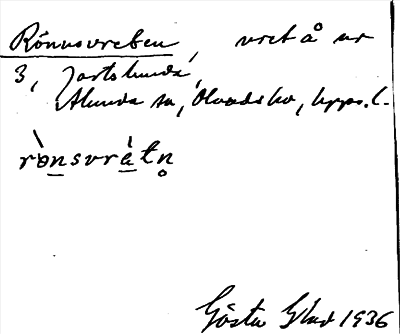 Rönnusvreten, vret å nr
3, Jartslunda,
Alunda sn, Olands hd, Upps. l.
rònsvrètn
Gösta Glad 1936